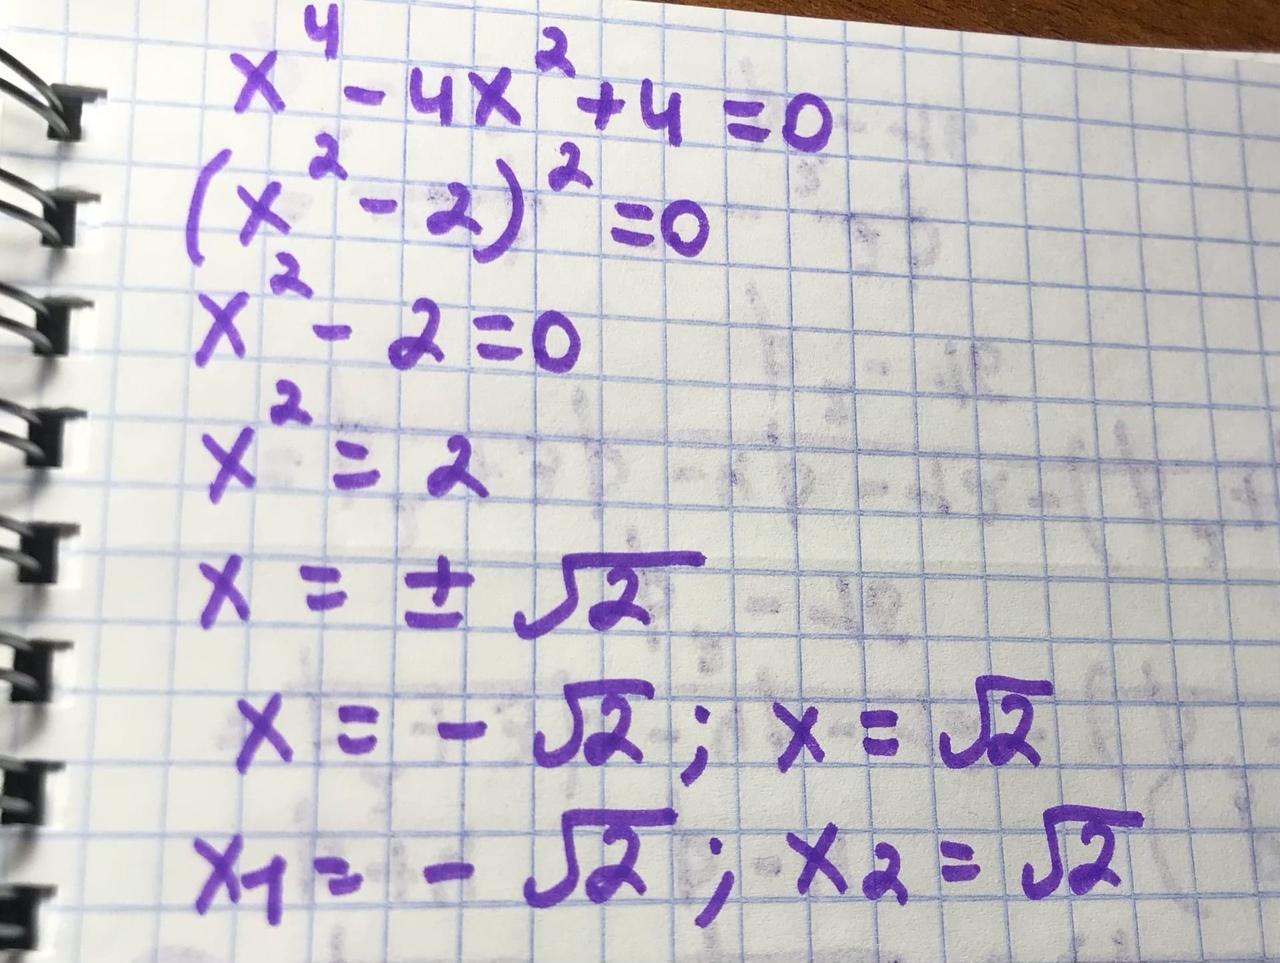 x⁴ - 4x² + 4 = 0
(x² - 2)² = 0
x² - 2 = 0
x² = 2
x = ± √2
x = - √2 ; x = √2
x1 = - √2 ; x2 = √2